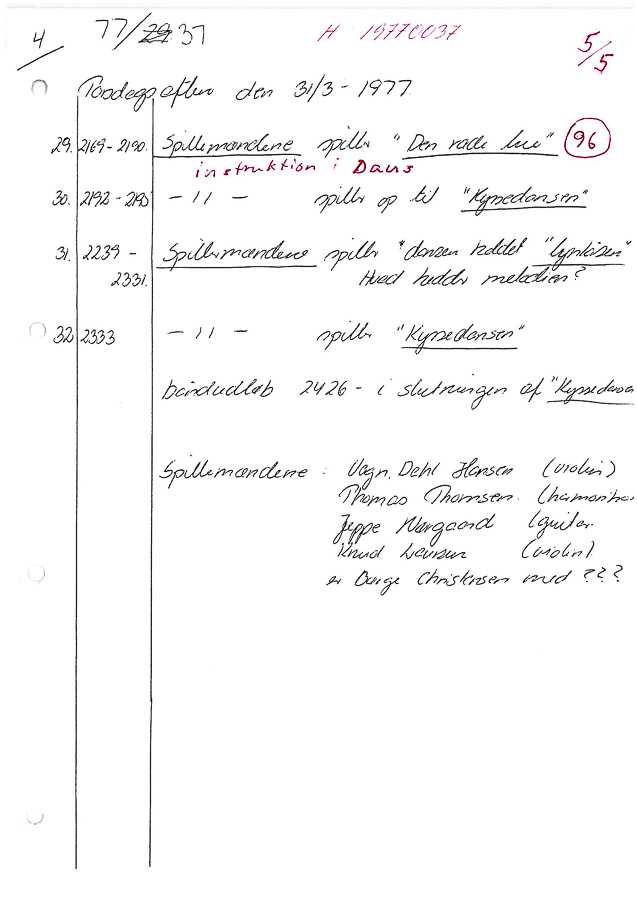 4
77/29.37
H 19770037
5/5
Torsdag aften den 31/3 - 1977
29. 2169-2190. Spillemændene spiller "Den røde lue" 96
instruktion i Dans
30. 2192-2193 - 11 - spiller op til "Kyssedansen"
31. 2239 - Spillemændene spiller "dansen kaldet
2331. Hvad hedder melodien?
32 2333 - 11 - spiller "Kyssedansen"
båndudløb 2426 - i slutningen af "Kyssedansen
Spillemændene : Vagn. Dehl Hansen (violin)
Thomas Thomsen. (harmonika
Jeppe Nørgaard (guitar.
Knud (violin)
er Børge Christensen med ???